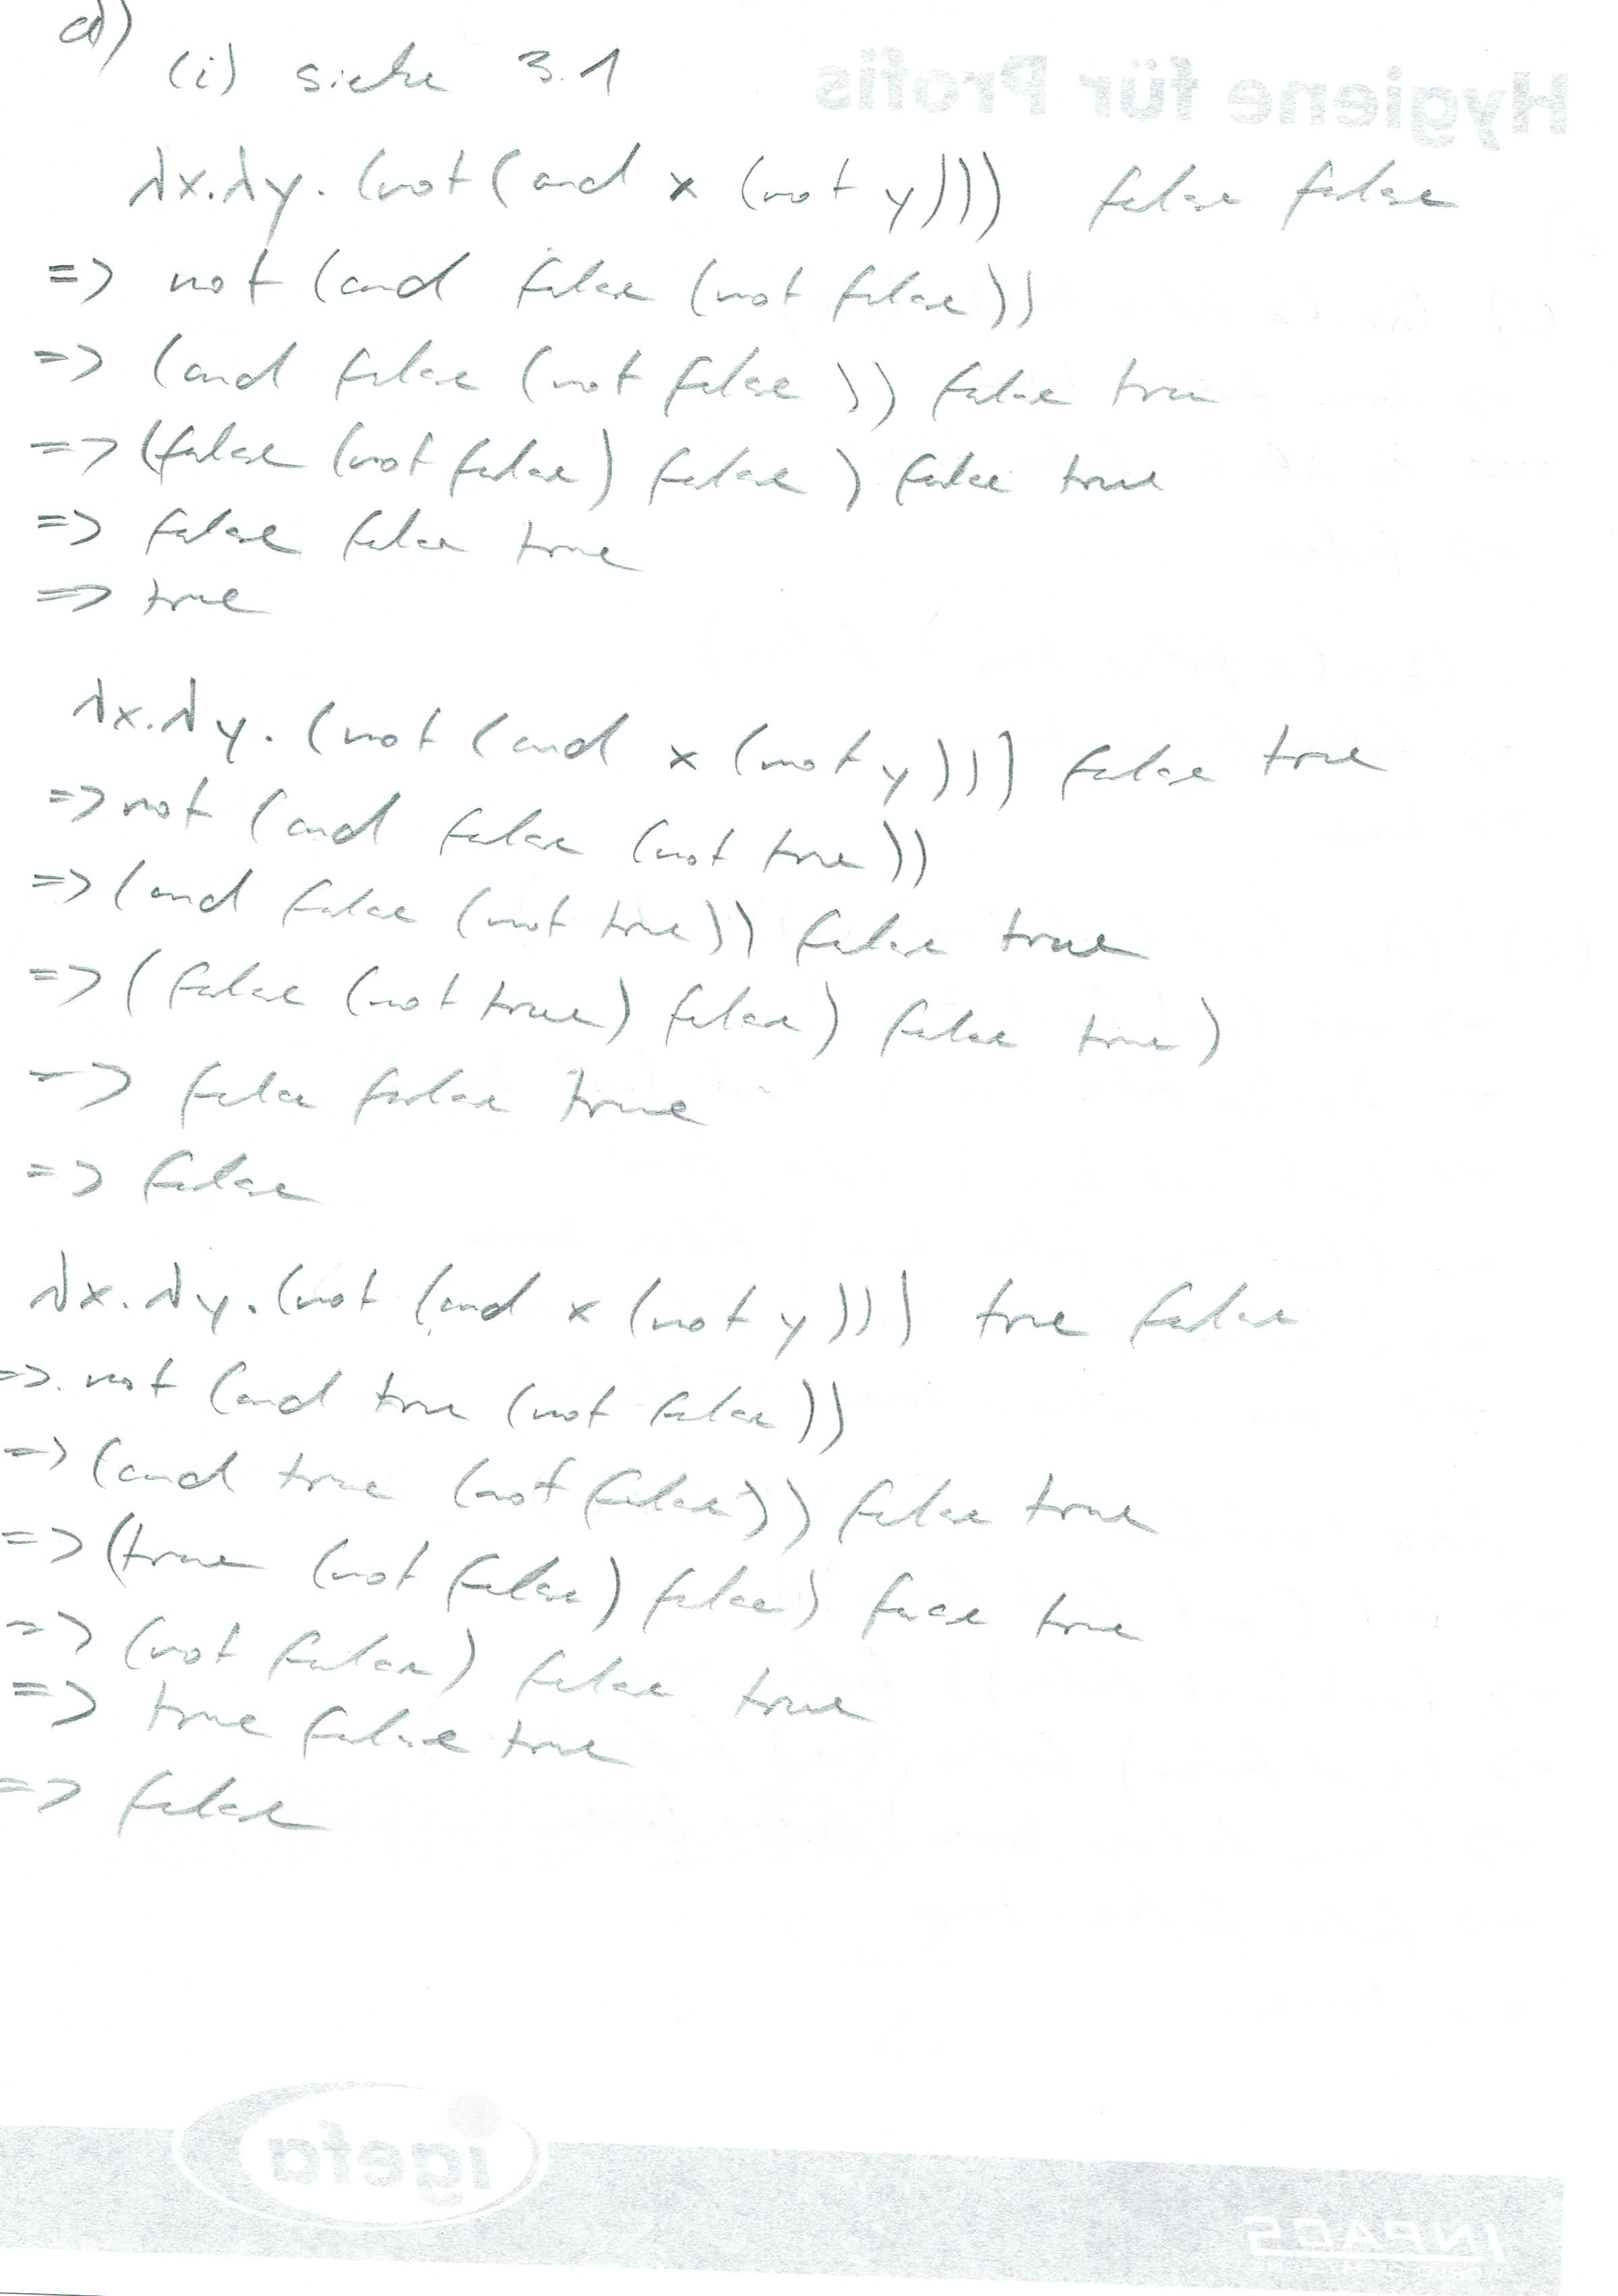 d)
(i) siehe 3.1
Hygiene für Profis
λx.λy.(not(and x (not y))) false false
=> not (and false (not false))
=> (and false (not false)) false true
=> (false (not false) false) false true
=> false false true
=> true
λx.λy.(not (and x (not y))) false true
=> not (and false (not true))
=> (and false (not true)) false true
=> (false (not true) false) false true)
=> false false true
=> false
λx.λy.(not (and x (not y))) true false
=> not (and true (not false))
=> (and true (not false)) false true
=> (true (not false) false) false true
=> (not false) false true
=> true false true
=> false
igefa
INPACS